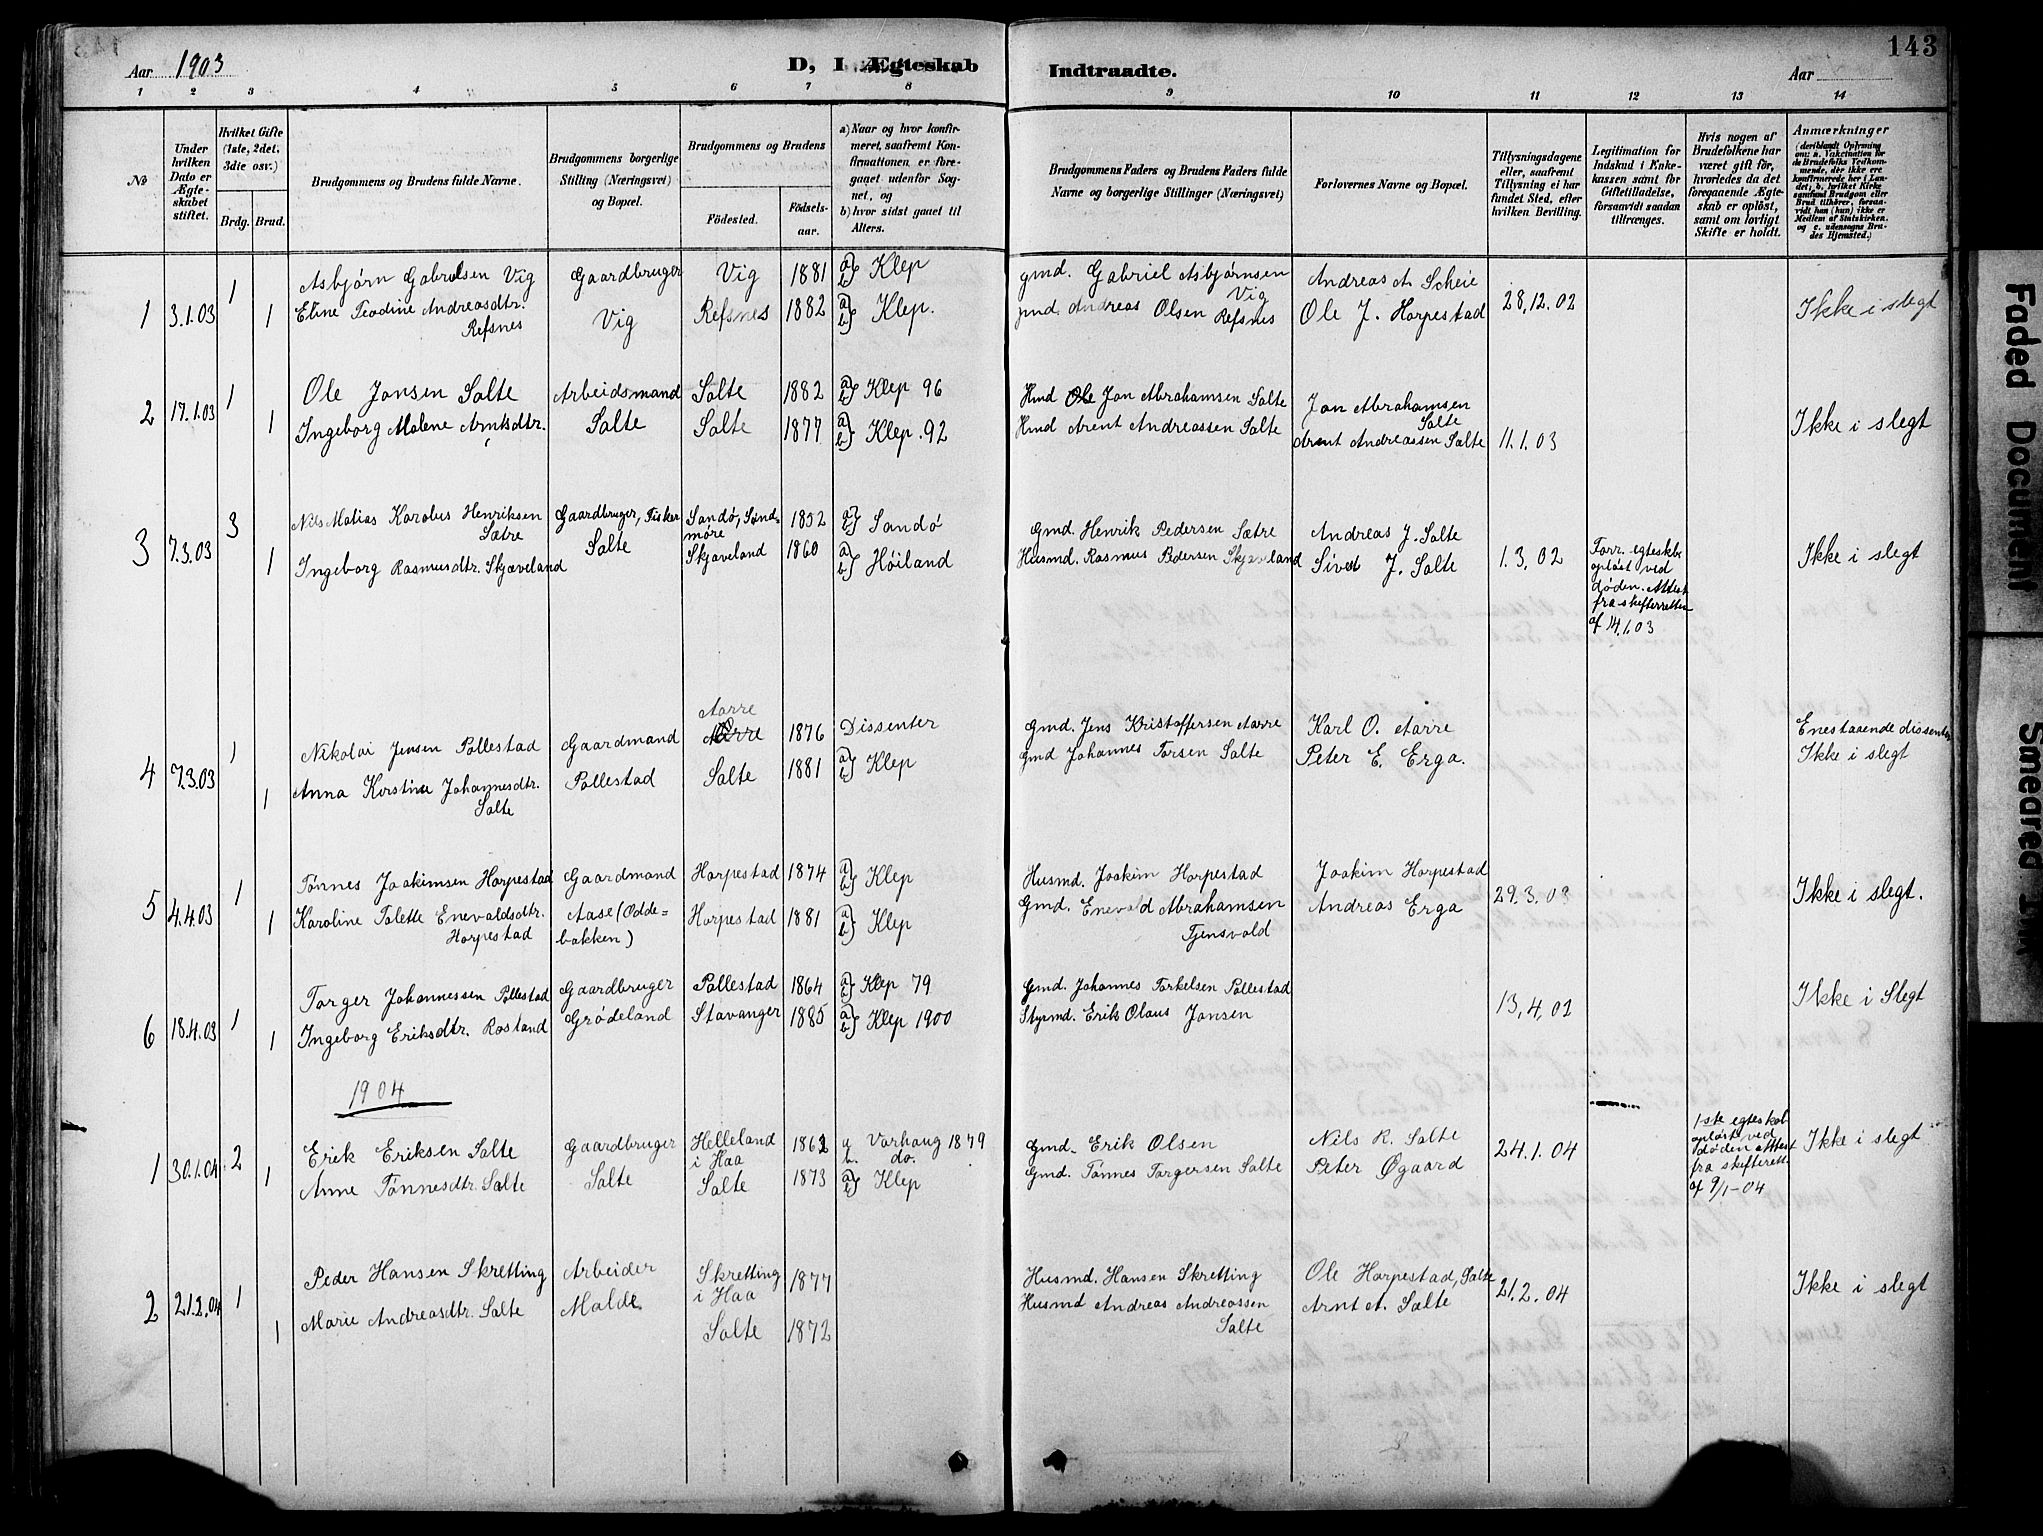 Aar 1903
D, I Ægteskab
Indtraadte.
Aar
143
1 2 3 4 5 6 7 8 9 10 11 12 13 14
No
Under hvilken Dato er Ægteskabet stiftet.
Hvilket Gifte (1ste, 2det, 3die osv.)
Brdg. Brud.
Brudgommens og Brudens fulde Navne.
Brudgommens borgerlige Stilling (Næringsvei) og Bopæl.
Brudgommens og Brudens
Fødested.
Fødselsaar.
a) Naar og hvor konfirmeret, saafremt Konfirmationen er foregaaet udenfor Sognet, og
b) hvor sidst gaaet til Alters.
Brudgommens Faders og Brudens Faders fulde Navne og borgerlige Stillinger (Næringsvei)
Forlovernes Navne og Bopæl.
Tillysningsdagene eller, saafremt Tillysning ei har fundet Sted, efter hvilken Bevilling.
Legitimation for Indskud i Enkekassen samt for Giftetilladelse, forsaavidt saadan tiltrænges.
Hvis nogen af Brudefolkene har været gift før, hvorledes da det foregaaende Ægteskab er opløst, samt om lovligt Skifte er holdt.
Anmærkninger
(deriblandt Oplysning om: a. Vakcination for de Brudefolks Vedkommende, der ikke ere konfirmerede her i Landet; b. hvilket Kirkesamfund Brudgom eller Brud tilhører, forsaavidt han (hun) ikke er Medlem af Statskirken, og c. udensogns Brudes Hjemsted.)
1 3.1.03 1 Asbjørn Gabrielsen Vig Gaardbruger Vig 1881 a) b) Klep gmd. Gabriel Asbjørnsen Vig Andreas A. Scheie
1 Eline Teodine Andreasdtr. Refsnes Vig Refsnes 1882 a) b) Klep. gmd. Andreas Olsen Refsnes Ole J. Horpestad 28,12.02 Ikke i slegt
2 17.1.03 1 Ole Jansen Salte Arbeidsmand Salte 1882 a) b) Klep 96 Hmd Jan Abrahamsen Salte Jan Abrahamsen Salte
1 Ingeborg Malene Arntsdtr. Salte Salte 1877 a) b) Klep. 92 Hmd Arent Andreassen Salte Arent Andreassen Salte 11.1.03 Ikke i slegt
3 7.3.03 3 Nils Matias Karolus Henriksen Sætre Gaardbruger, Fisker Sandø, Søndmøre 1852 a) b) Sandø Gmd. Henrik Pedersen Sætre Andreas J. Salte
1 Ingeborg Rasmusdtr. Skjæveland Salte Skjæveland 1860 a) b) Høiland Husmd. Rasmus Pedersen Skjæveland Sivert J. Salte 1.3,02 Forr. egteskb. opløst ved døden. Attest fra skifteretten af 14.1.03 Ikke i slegt
4 7.3.03 1 Nikolai Jensen Pollestad Gaardmand Aarre 1876 Dissenter Gmd. Jens Kristoffersen Aarre Karl O. Aarre Enestaaende dissenter
1 Anna Kirstine Johannesdtr. Salte Pollestad Salte 1881 a) b) Klep Gmd Johannes Torsen Salte Peter E. Erga. Ikke i slegt
5 4.4.03 1 Tønnes Joakimsen Horpestad Gaardmand Horpestad 1874 a) b) Klep Husmd. Joakim Horpestad Joakim Horpestad
1 Karoline Tolette Enevaldsdtr. Horpestad Aase (Oddebakken) Horpestad 1881 a) b) Klep Gmd. Enevald Abrahamsen Tjensvold Andreas Erga 29.3.03 Ikke i slegt.
6 18.4.03 1 Torger Johannessen Pollestad Gaardbruger Pollestad 1864 a) b) Klep 79 Gmd. Johannes Torkelsen Pollestad
1 Ingeborg Eriksdtr. Rosland Grødeland Stavanger 1885 a) b) Klep 1900 Styrmd. Erik Olaus Jansen 13,4,02 Ikke i Slegt
1904
1 30.1.04 2 Erik Eriksen Salte Gaardbruger Helleland i Haa 1862 a Varhaug 1879 b. do. Gmd. Erik Olsen Nils R. Salte
1 Anne Tønnesdtr. Salte Salte Salte 1873 a) b) Klep Gmd. Tønnes Torgersen Salte Peter Øgaard 24.1.04 1-ste egteskab opløst ved døden Attest fra skifterett. af 9/1-04 Ikke i slegt
2 21.2.04 1 Peder Hansen Skretting Arbeider Skretting i Haa 1877 Husmd. Hansen Skretting Ole Horpestad, Salte
1 Marie Andreasdtr. Salte Malde Salte 1872 Husmd Andreas Andreassen Salte Arnt A. Salte 21.2.04 Ikke i slegt
Faded Document
Smeared Ink